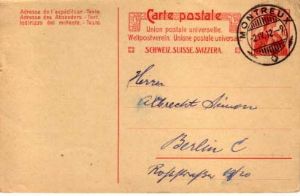 Adresse de l'expéditeur - Texte.
Adresse des Absenders - Text.
Indirizzo del mittente - Testo.
Carte postale
Union postale universelle.
Weltpostverein. Unione postale universale
SCHWEIZ. SUISSE. SVIZZERA.
MONTREUX
Herrn
Albrecht Simon
Berlin C